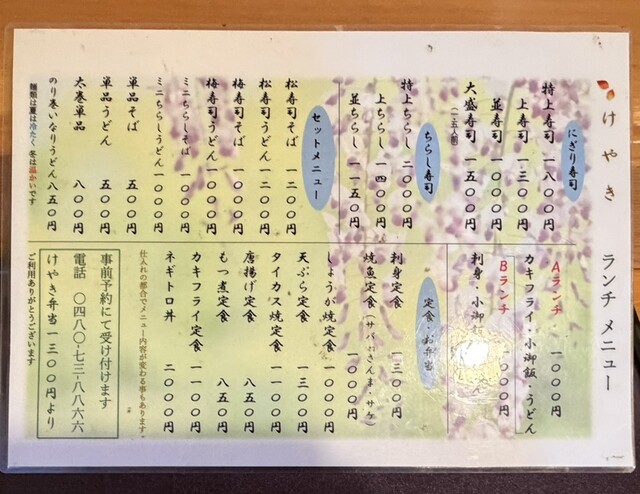 けやき ランチ メニュー
にぎり寿司
特上寿司 一八〇〇円
上寿司 一三〇〇円
並寿司 一〇〇〇円
大盛寿司 一五〇〇円
(一・五人前)
ちらし寿司
特上ちらし 二〇〇〇円
上ちらし 一四〇〇円
並ちらし 一一五〇円
セットメニュー
松寿司そば 一二〇〇円
松寿司うどん 一二〇〇円
梅寿司そば 一〇〇〇円
梅寿司うどん 一〇〇〇円
ミニちらしそば 一〇〇〇円
ミニちらしうどん 一〇〇〇円
単品そば 五〇〇円
単品うどん 五〇〇円
太巻単品 八〇〇円
のり巻いなりうどん 八五〇円
麺類は夏は冷たく 冬は温かいです
Aランチ 一〇〇〇円
カキフライ・小御飯・うどん
Bランチ 一〇〇〇円
刺身・小御
定食・お弁当
刺身定食 一三〇〇円
焼魚定食(サバ・さんま・サケ)
一〇〇〇円
しょうが焼定食 一〇〇〇円
天ぷら定食 一三〇〇円
タイカス焼定食 一一〇〇円
唐揚げ定食 八五〇円
もつ煮定食 八五〇円
カキフライ定食 一一〇〇円
ネギトロ丼 二〇〇〇円
仕入れの都合でメニュー内容が変わる事もあります
事前予約にて受け付けます
電話 〇四八〇-七三-八八六六
けやき弁当 一三〇〇円より
ご利用ありがとうございます